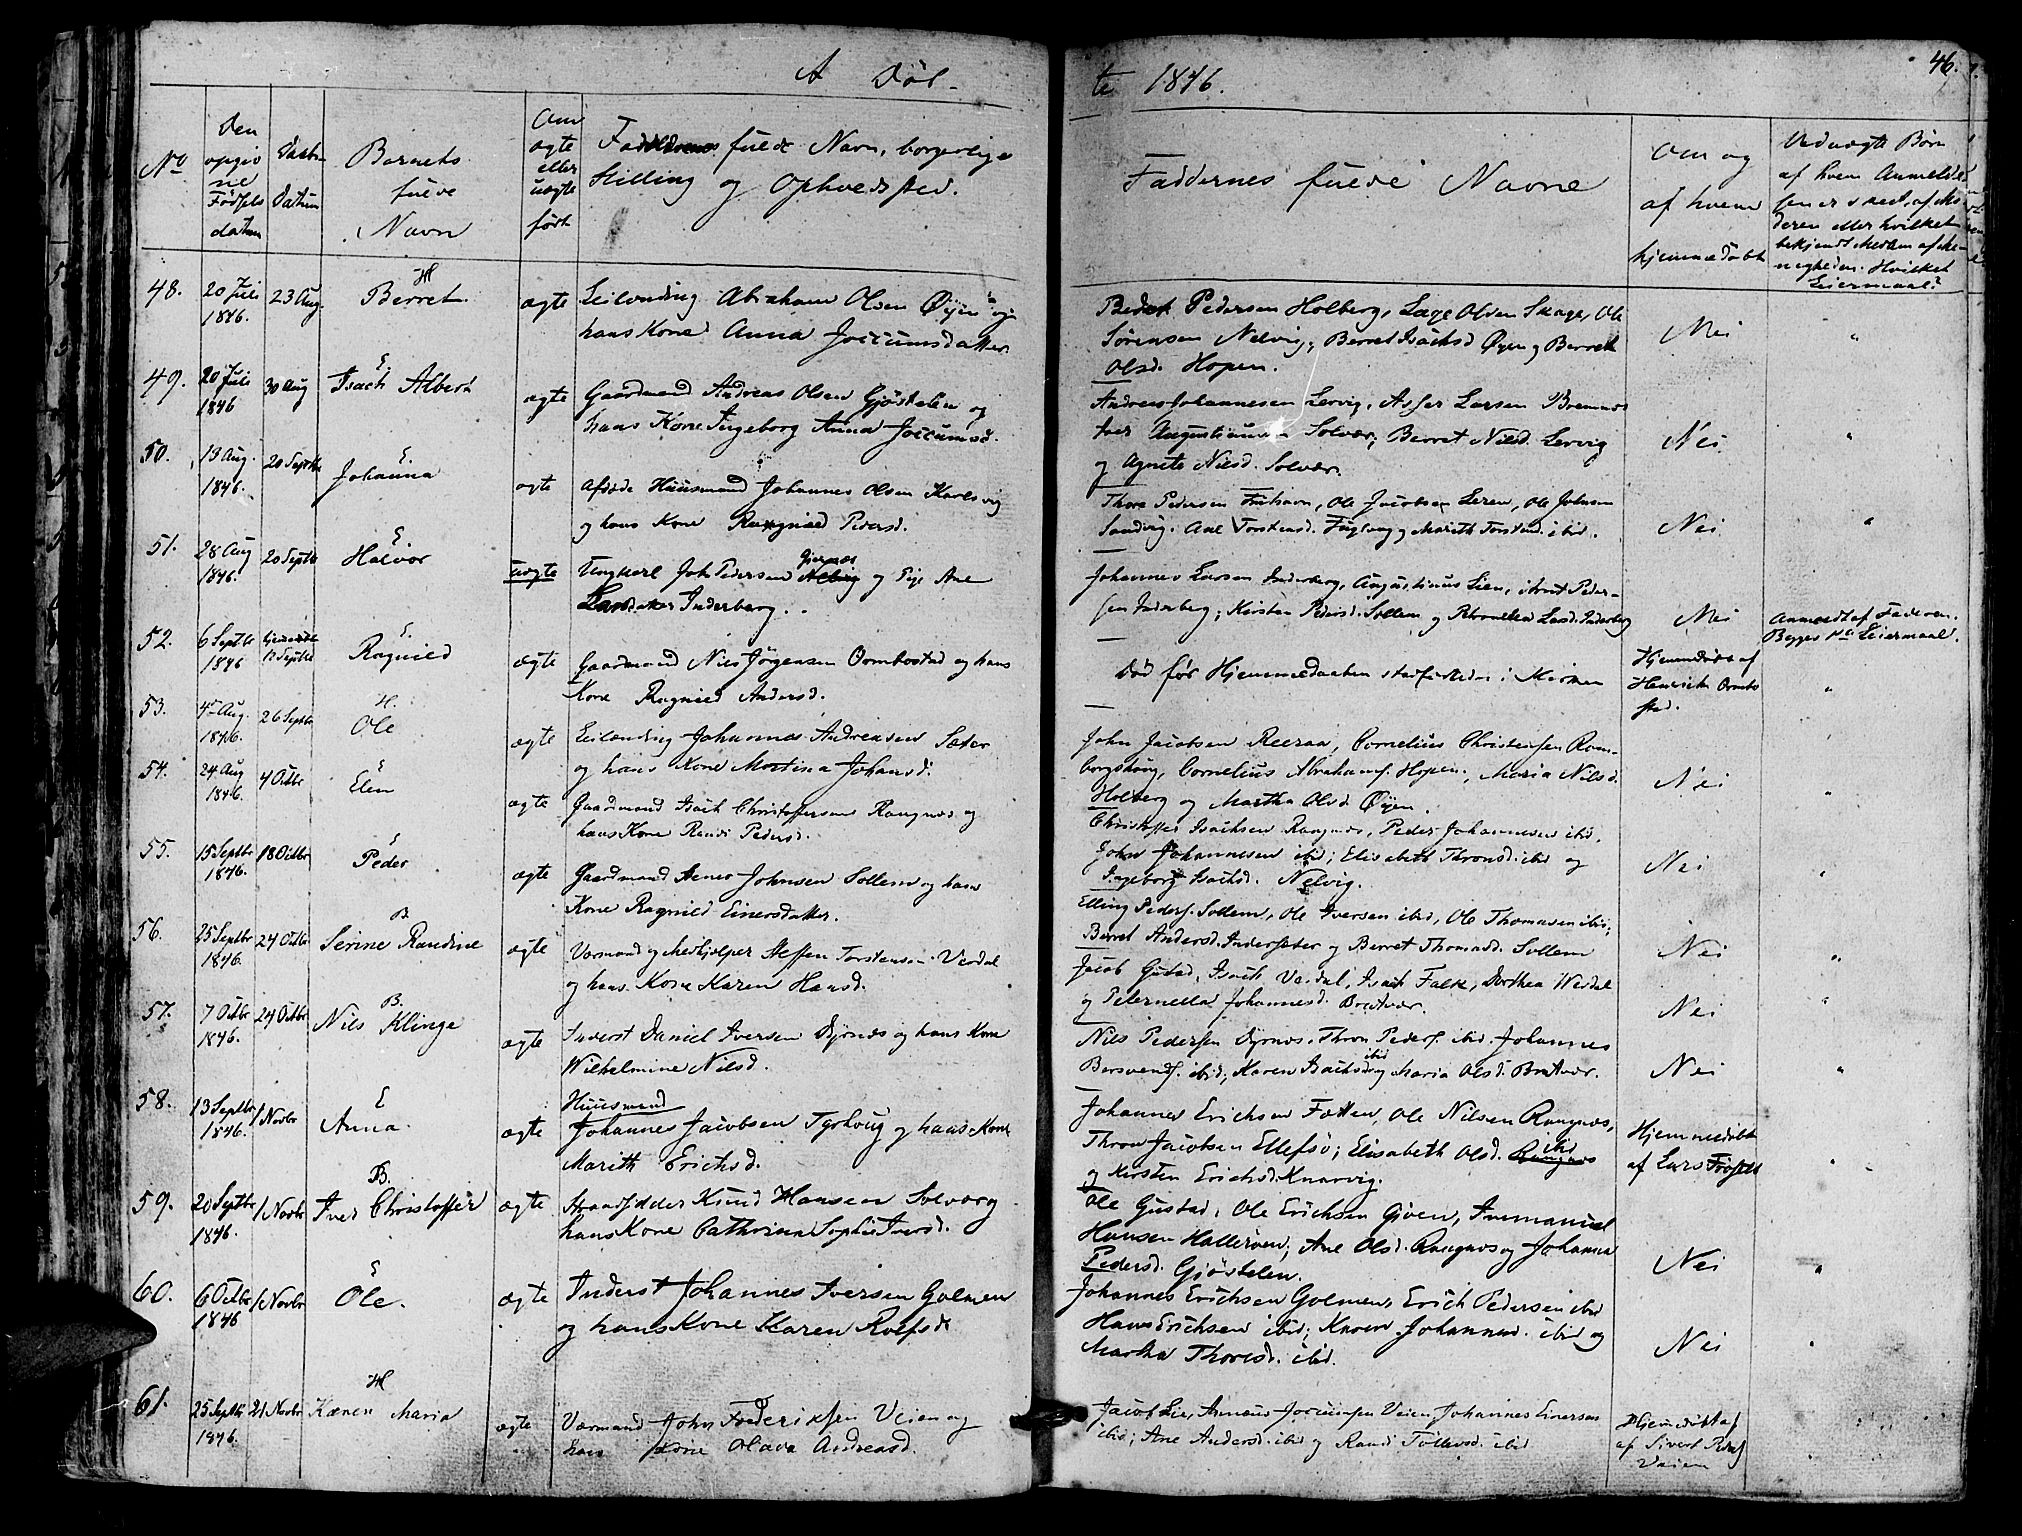 A Døb-
te 1846.
46.
No
Den opgivne Fødselsdatum
Daabs Datum
Barnets fulde Navn
Om ægte eller uægte født
Forældrenes fulde Navn, borgerlige Stilling og Opholdssted.
Faddernes fulde Navne
Om og af hvem hjemmedøbt
Ved uægte Børn af hvem Anmeldelsen er skeet, af Moderen eller hvilket bekjendt Medlem af Menigheden. Hvilket Leiermaal?
48.
20 Juli 1846.
23 Aug.
H
Berret
ægte
Leilending Abraham Olsen Øyen og
hans Kone Anna Joccumsdatter
Peder Pedersen Holberg, Lage Olsen Skage, Ole
Sørensen Nelvig, Berret Isachsd Øyen og Berret
Olsd. Hopen.
Nei
"
49.
20 Juli 1846
30 Aug
E.
Isach Albert
ægte
Gaardmand Andreas Olsen Gjøstelen og
hans Kone Ingeborg Anna Joccumsd.
Andreas Johannesen Lervig, Larsen
Solvær; Berret Nilsd. Lervig
og Agnete Nilsd. Solvær.
Nei.
"
50.
13 Aug. 1846.
20 Septbr
E.
Johanna
ægte
Afdøde Huusmand Johannes Olsen Karlsvig
og hans Kone Ragnild Pedersd.
Thore Pedersen, Ole Jacobsen Leren, Ole Johnsen
Sandvig. Ane Torstensd. Fuglvog og Marith Torstensd. ibid.
Nei
"
51.
28 Aug 1846.
20 Septbr
E
Halvor
uægte
Ungkarl Joh. Pedersen og Pige Ane
Larsdatter Inderberg.
Johannes Larsen Inderberg, Augustinus Lien, Arnt Peder-
sen Inderberg; Kirsten Pedersd. Sollem og Petronella Larsd. Inderberg
Nei
Anmeldt af Faderen.
Begges 1ste Leiermaal.
52.
6 Septbr 1846
hjemmedøbt 12 Septbr
E.
Ragnild
ægte
Gaardmand Nils Jørgensen Ormbostad og hans
Kone Ragnild Andersd.
Død før Hjemmedaaben stadfæstedes i Kirken
Hjemmedøbt af
Henrich Ormbo
stad.
"
53.
4de Aug. 1846.
26 Septbr
H.
Ole
ægte
Leilending Johannes Andreasen Sæter
og hans Kone Martina Johansd.
John Jacobsen Reeraa, Cornelius Christensen Ram-
borgshoug, Cornelius Abrahams. Hopen, Maria Nilsd.
Holberg og Martha Olsd. Øyen.
Nei
"
54.
24 Aug 1846.
4 Octbr
E
Elen
ægte
Gaardmand Isach Christoffersen Rangnæs og
hans Kone Randi Pedersd.
Christoffer Isachsen Rangnæs, Peder Johannesen ibid,
John Johannesen ibid; Elisabeth Thronsd. ibid og
Ingeborg Isachsd. Nelvig.
Nei
"
55.
15 Septbr 1846.
18 Octbr
E
Peder
ægte
Gaardmand Johnsen Sollem og hans
Kone Ragnild Einersdatter.
Elling Peders. Sollem, Ole Iversen ibid, Ole Thomasen ibid;
Berret Andersd. Indersæter og Berret Thomasd. Sollem
Nei
"
56.
25 Septbr 1846.
24 Octbr
B
Serine Randine
ægte
Vormand og Medhjelper Steffen Torstensen Verdal
og hans Kone Karen Hansd.
Jacob Gustad, Isach Verdal, Isach Falk, Dorthea Verdal
og Peternella Johannesd. Bratvær.
Nei
"
57.
7 Octbr 1846.
24 Octbr
B.
Nils Klinge
ægte
Inderst Daniel Iversen Dyrnæs og hans Kone
Wilhelmine Nilsd.
Nils Pedersen Dyrnæs, Thron Peders. ibid. Johannes
Borsvends. ibid; Karen Isachsd ibid og Maria Olsd. Bratvær.
Nei
"
58.
13 Septbr 1846.
1 Novbr
E
Anna.
ægte
Huusmand
Johannes Jacobsen Tyrhoug og hans Kone
Marith Erichsd.
Johannes Erichsen Fætten, Ole Nilsen Rangnæs,
Thron Jacobsen Ellefsø; Elisabeth Olsd. ibid
og Kirsten Erichsd. Knarvig.
Hjemmedøbt
af Lars
"
59.
20 Septbr 1846.
1 Novbr
B.
Iver Christoffer
ægte
Strandsidder Knud Hansen Solvær og
hans Kone Cathrina Sophie Iversd.
Ole Gustad, Ole Erichsen Gjøen, Immanuel
Hansen Halleren, Ane Olsd. Rangnæs og Johanna
Pedersd. Gjøstelen.
Nei
"
60.
6 Octbr 1846
1 Novbr
E
Ole.
ægte
Inderst Johannes Iversen Golmen
og hans Kone Karen Rolfsd.
Johannes Erichsen Golmen, Erich Pedersen ibid
Hans Erichsen ibid; Karen Johannesd. ibid og
Martha Thoresd. ibid.
Nei
"
61.
25 Septbr 1846.
21 Novbr
H
Karen Maria
ægte
Vormand John Frederiksen Veien og
hans Kone Olava Andreasd.
Jacob Lie, Joccumsen Veien, Johannes Einersen
ibid; Ane Andersd. ibid og Randi Tollevsd. ibid
Hjemmedøbt af
af Sivert Peders
Veien
"